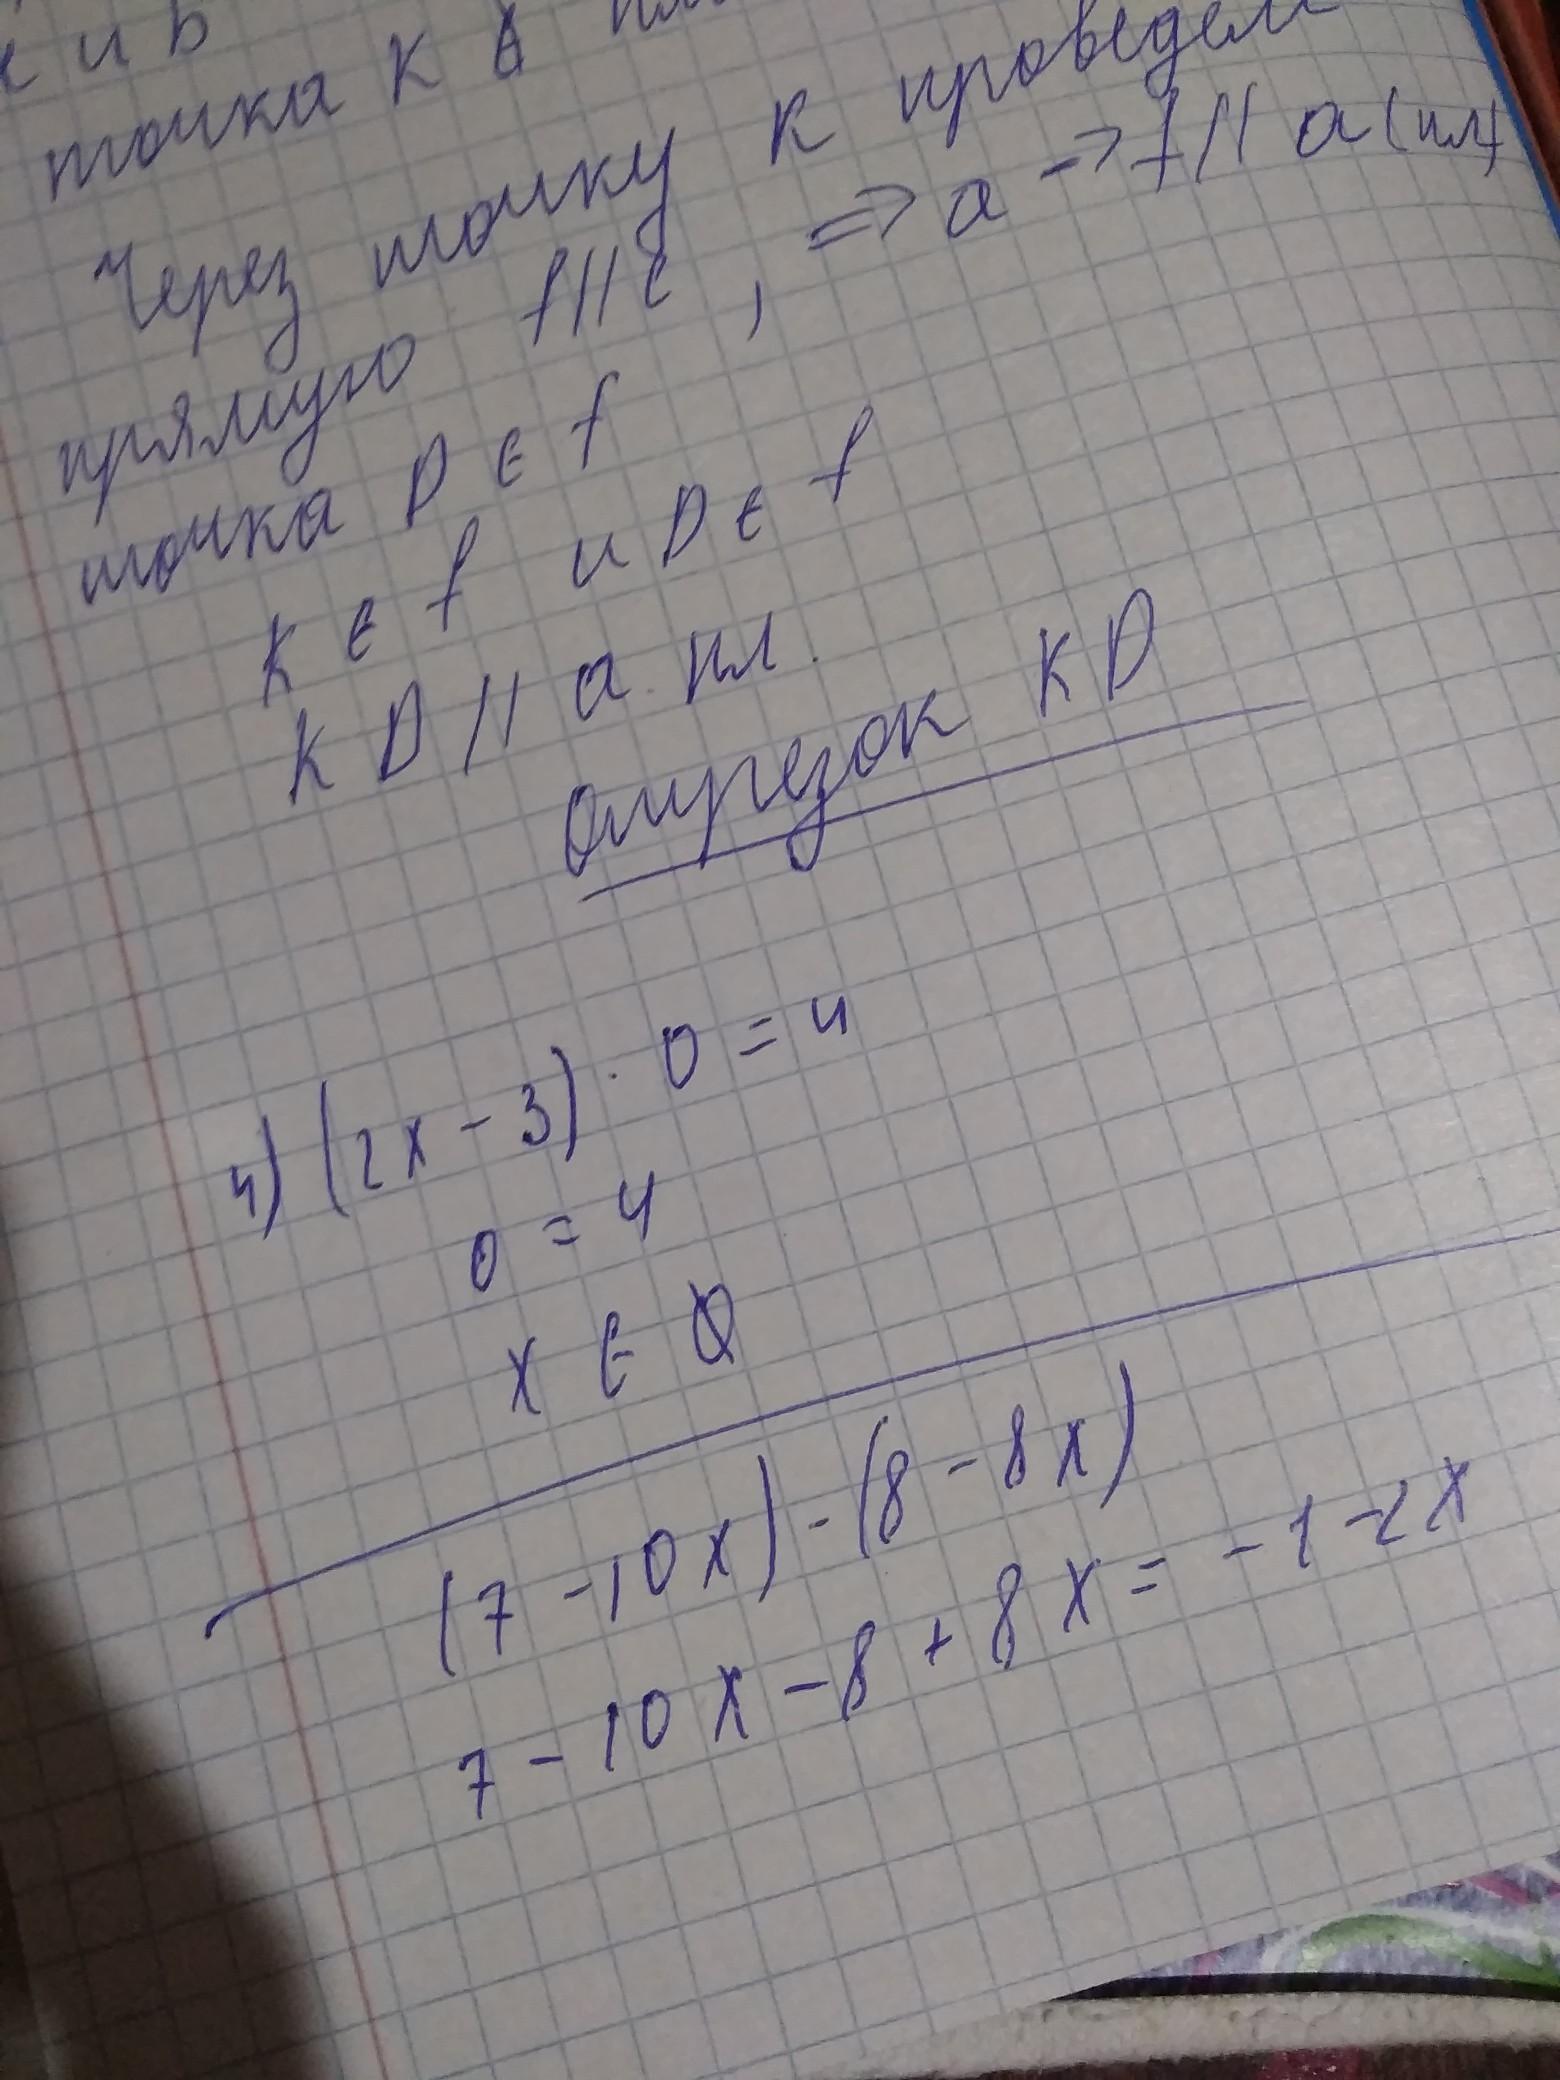 и b
точка K в
Через точку K проведем
прямую f||c, => a -> f || a (пл)
точка D ∈ f
K ∈ f и D ∈ f
KD || a пл.
Отрезок KD
4) (2x - 3) · 0 = 4
0 = 4
x ∈ Ø
(7 - 10x) - (8 - 8x)
7 - 10x - 8 + 8x = -1 - 2x